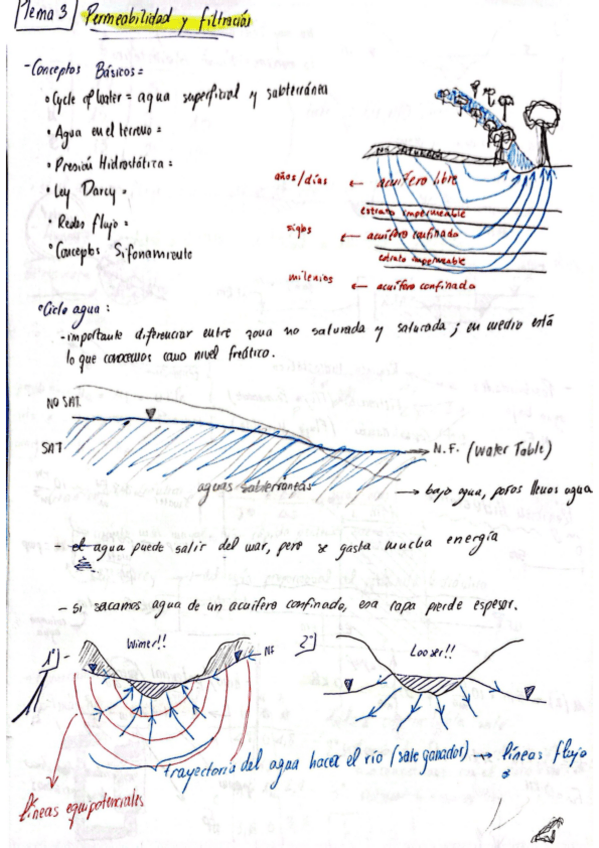 Tema 3 Permeabilidad y filtración
- Conceptos Básicos =
• Cycle of Water = agua superficial y subterránea
• Agua en el terreno =
• Presión Hidrostática =
• Ley Darcy =
• Redes flujo =
• Conceptos Sifonamiento
años/días ← acuífero libre
estrato impermeable
siglos ← acuífero confinado
estrato impermeable
milenios ← acuífero confinado
• Ciclo agua :
- importante diferenciar entre zona no saturada y saturada ; en medio está
lo que conocemos como nivel freático.
NO SAT.
SAT
N.F. (Water Table)
aguas subterráneas
→ bajo agua, poros llenos agua
- el agua puede salir del mar, pero se gasta mucha energía
- si sacamos agua de un acuífero confinado, esa capa pierde espesor.
1º) - Winner!! ← NF
2º) Looser!!
trayectoria del agua hacia el río (sale ganador) → líneas flujo
líneas equipotenciales